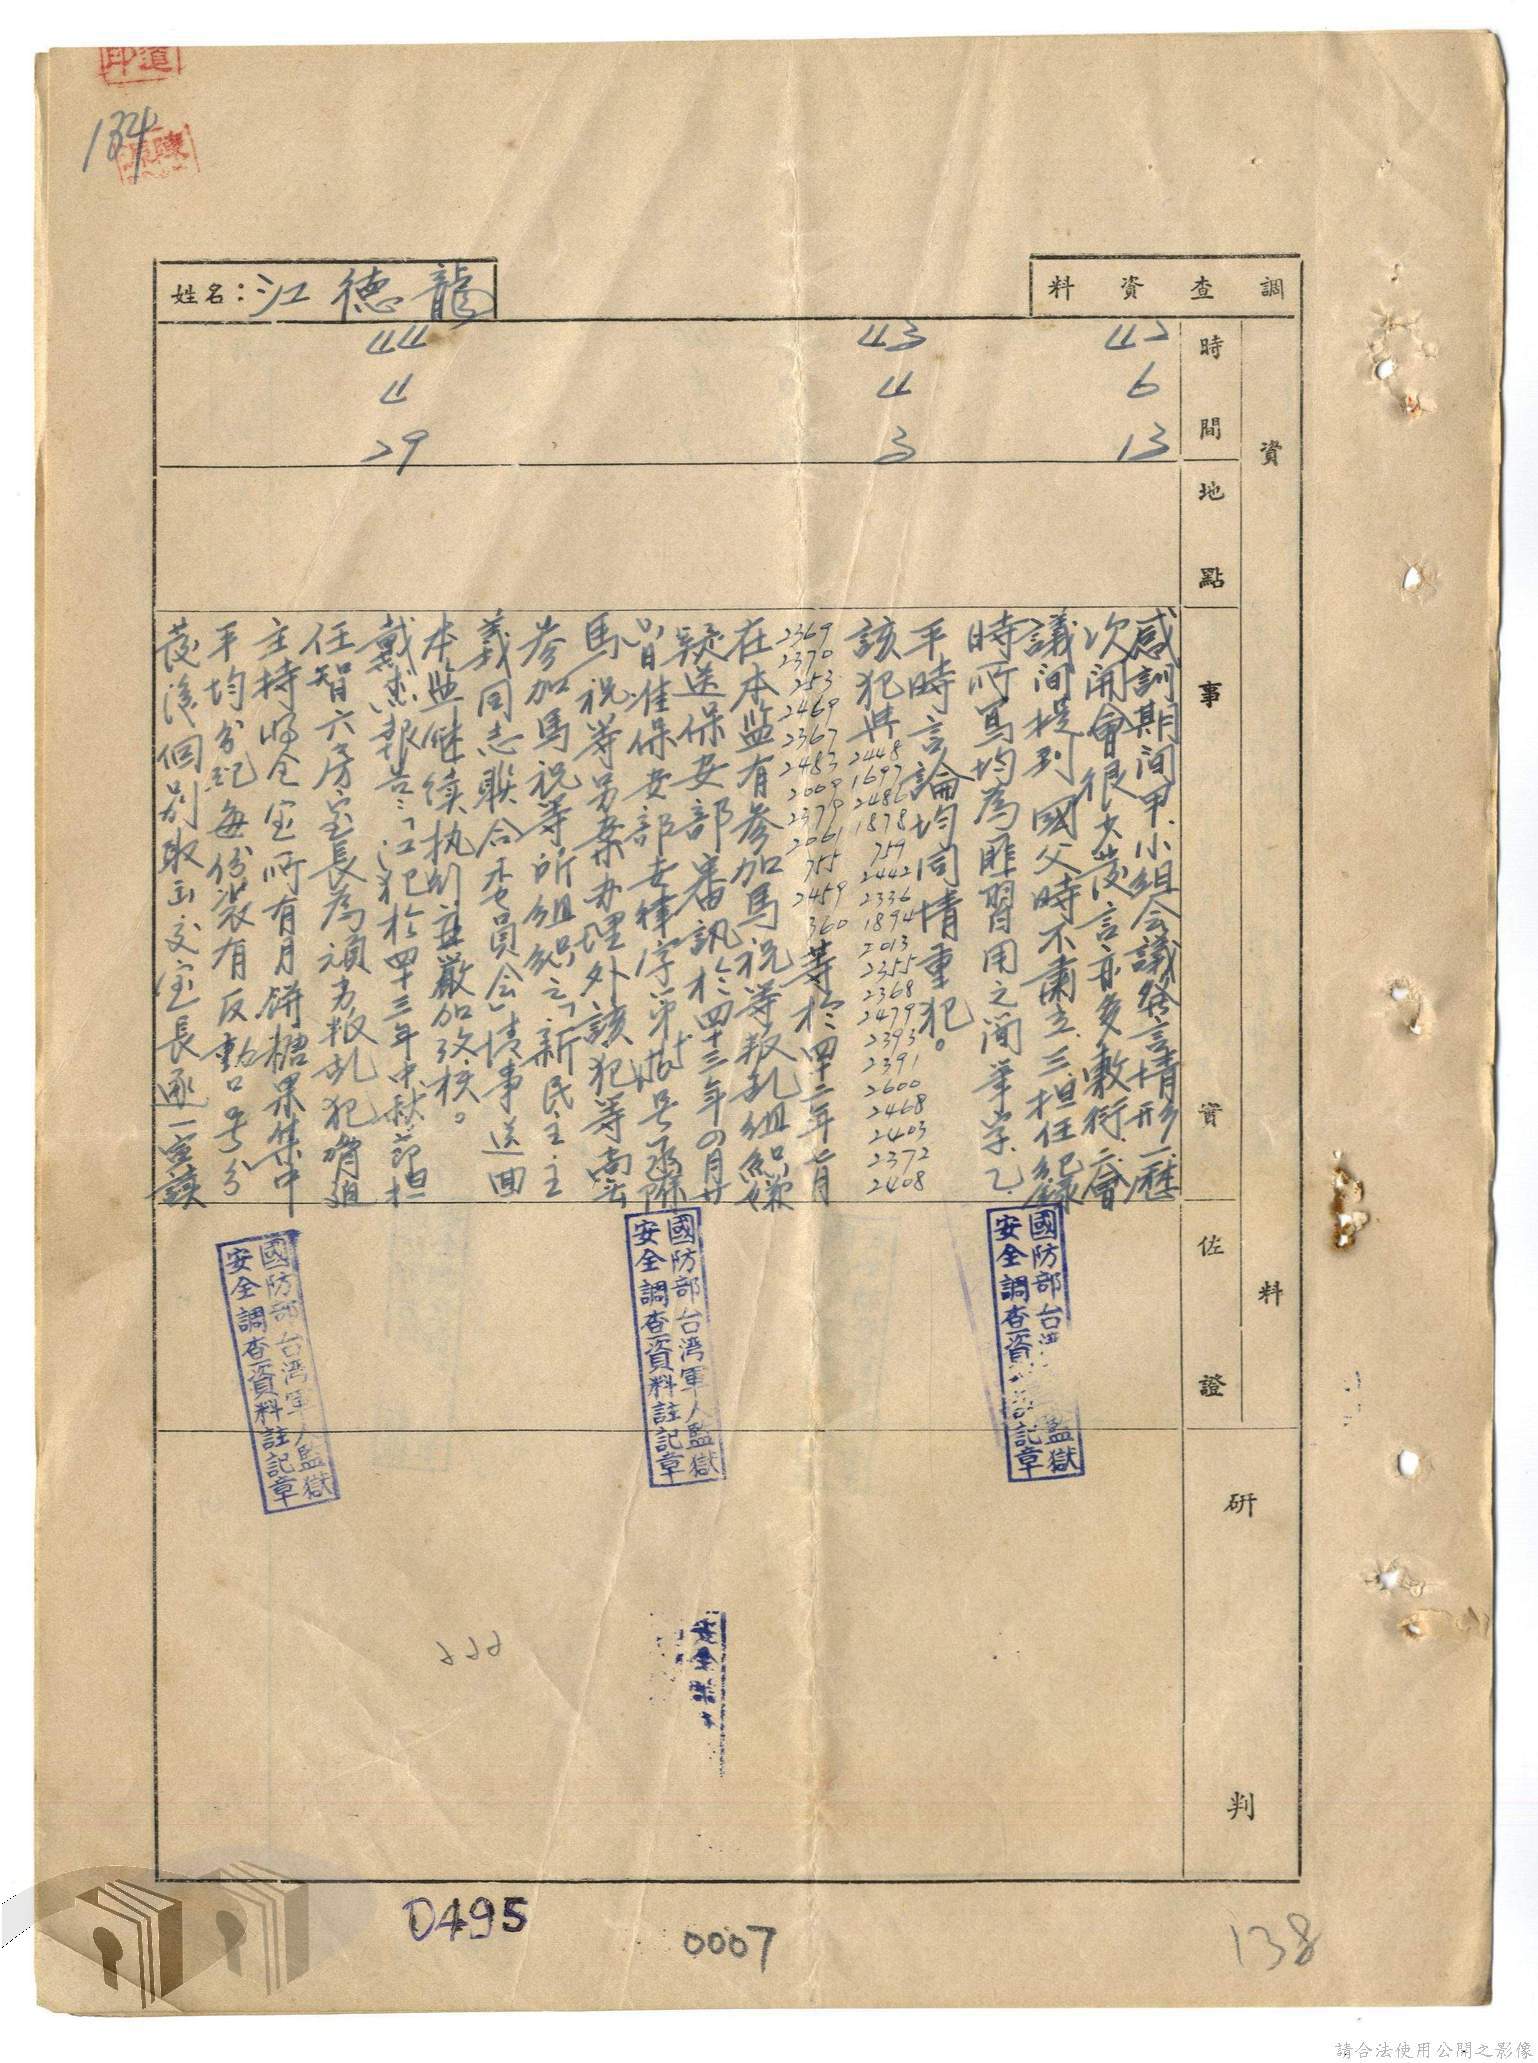 調查資料
姓名：江德龍
時間
地點
事實
佐證
資料
研判
42
6
13
感訓期間甲.小組会議發言情形一.歷
次開會很少發言亦多敷衍.二.會
議间提到國父時不肅立.三.担任紀錄
時所寫均為匪習用之简筆字.乙.
平時言論均同情重犯。
43
4
3
該犯與
2448
1697
2486
1878
759
2442
2336
1894
2013
2355
2368
2479
2393
2391
2600
2468
2403
2372
2408
2369
2370
253
2469
2367
2483
2009
2379
2061
755
2459
360
等於四十二年七月
在本监有參加馬祝等叛乱組織嫌
疑送保安部審訊於四十三年四月廿
準保安部安律字第 号函除
馬.祝等另案办理外該犯等尚無
參加馬祝等所組織之「新民主主
義同志联合委員会」情事送回
本监继续执别並嚴加攷核。
44
4
29
報告:「江犯於四十三年中秋節担
任智六房室長為頑劣叛乱犯
主持將全室所有月餅糖果集中
平均分配每份裝有反動口号分
發後個別取出交室長逐一宣讀
國防部台湾軍人監獄
安全調查資料註記章
國防部台湾軍人監獄
安全調查資料註記章
國防部台 監獄
安全調查資 記章
134
0495
0007
138
請合法使用公開之影像